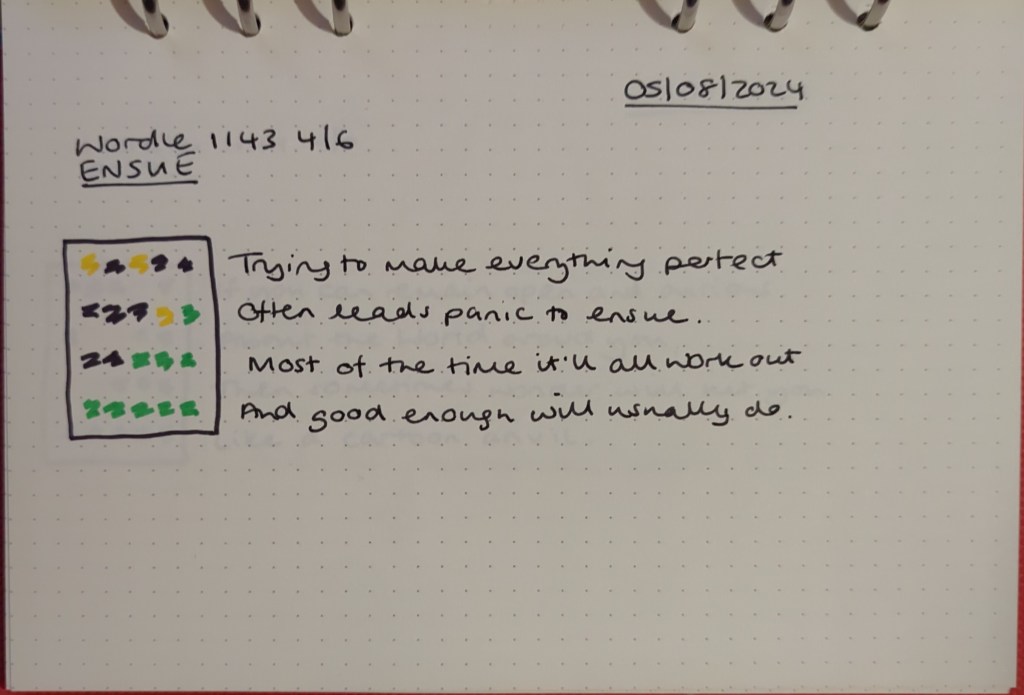 05/08/2024
Wordle 1143 4/6
ENSUE
Trying to make everything perfect
Often leads panic to ensue.
Most of the time it'll all work out
And good enough will usually do.